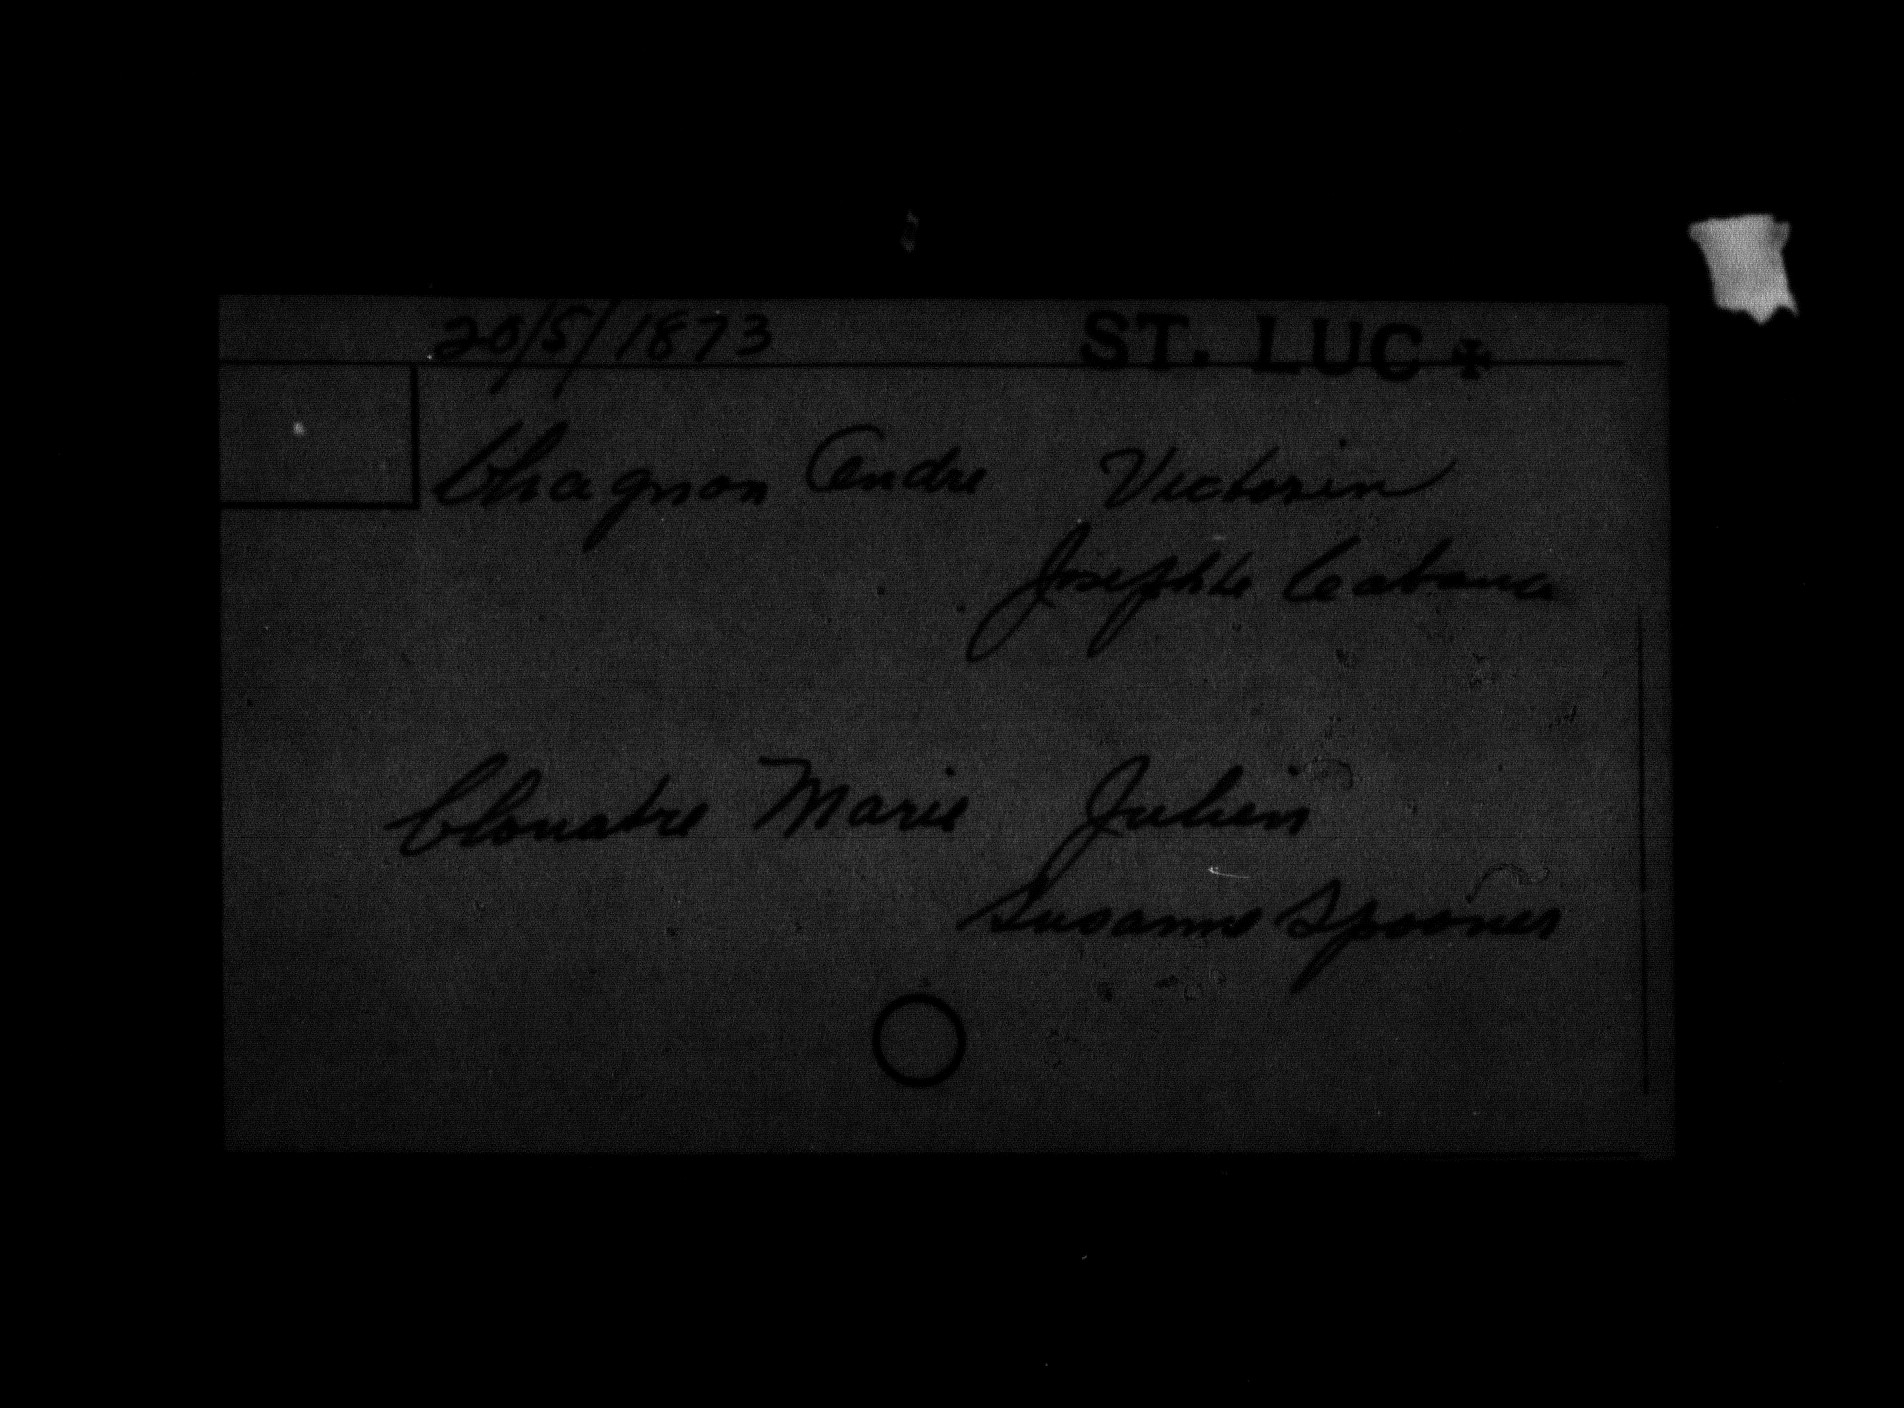 20/5/1873 ST. LUC
Chagnon Andre Victorin
Josephte Cabana
Clouatre Marie Julien
Susanne Spooner